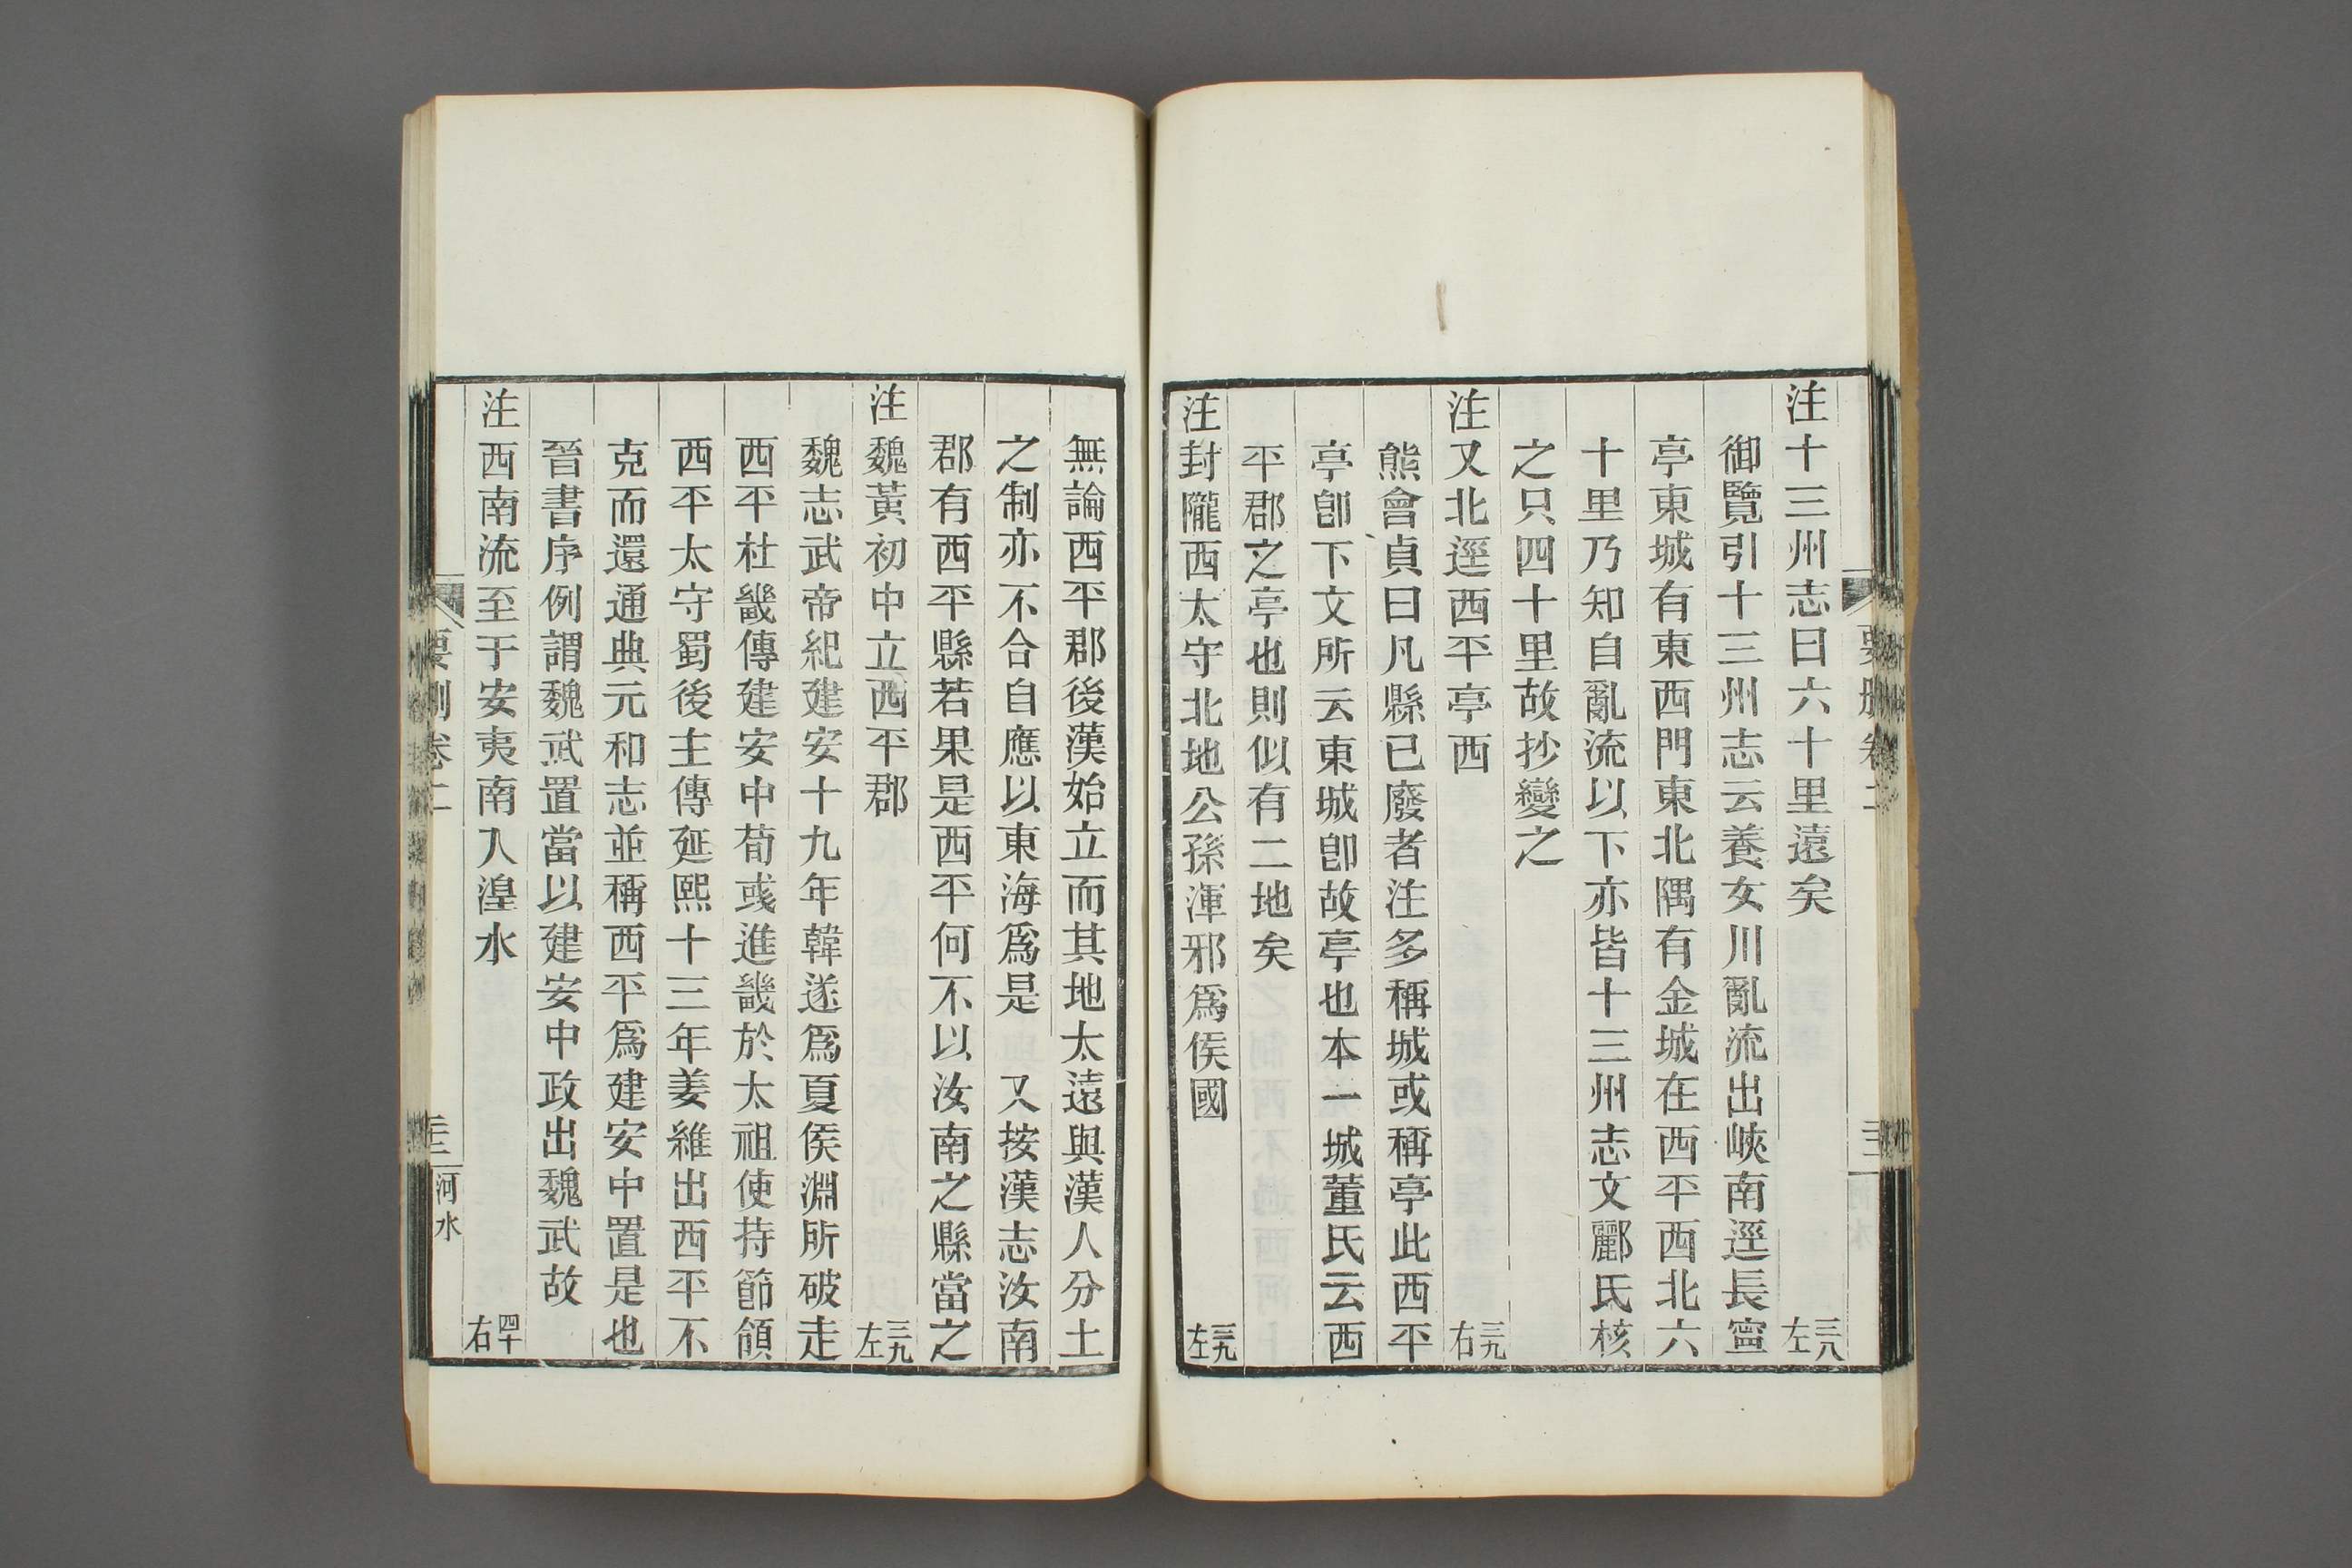 注十三州志曰六十里遠矣 三八左
御覽引十三州志云養女川亂流出峽南逕長寍
亭東城有東西門東北隅有金城在西平西北六
十里乃知自亂流以下亦皆十三州志文酈氏核
之只四十里故抄變之
注又北逕西平亭西 三九右
熊會貞曰凡縣已廢者注多稱城或稱亭此西平
亭卽下文所云東城卽故亭也本一城董氏云西
平郡之亭也則似有二地矣
注封隴西太守北地公孫渾邪爲侯國 三九左
無論西平郡後漢始立而其地太遠與漢人分土
之制亦不合自應以東海爲是 又按漢志汝南
郡有西平縣若果是西平何不以汝南之縣當之
注魏黃初中立西平郡 三九左
魏志武帝紀建安十九年韓遂爲夏侯淵所破走
西平杜畿傳建安中荀彧進畿於太祖使持節領
西平太守蜀後主傳延熙十三年姜維出西平不
克而還通典元和志並稱西平爲建安中置是也
晉書序例謂魏武置當以建安中政出魏武故
注西南流至于安夷南入湟水 四十右
要刪卷二 河水